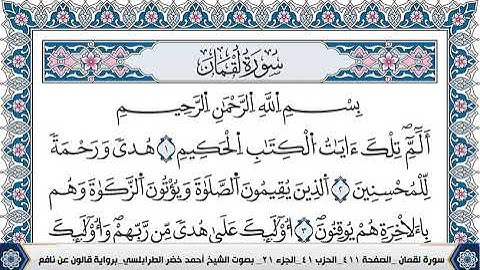 سُورَةُ لُقْمَانَ
بِسْمِ اللَّهِ الرَّحْمَٰنِ الرَّحِيمِ
أَلَٓمِّٓ تِلْكَ ءَايَٰتُ الْكِتَٰبِ الْحَكِيمِ ١ هُدىٗ وَرَحْمَةٗ
لِّلْمُحْسِنِينَ ٢ اَلذِينَ يُقِيمُونَ الصَّلَوٰةَ وَيُوتُونَ الزَّكَوٰةَ وَهُم
بِالَاخِرَةِ هُمْ يُوقِنُونَ ٣ أُوْلَٰٓئِكَ عَلَىٰ هُدىٗ مِّن رَّبِّهِمْ وَأُوْلَٰٓئِكَ
سورة لقمان _الصفحة ٤١١_الحزب ٤١_الجزء ٢١_ بصوت الشيخ أحمد خضر الطرابلسي_برواية قالون عن نافع